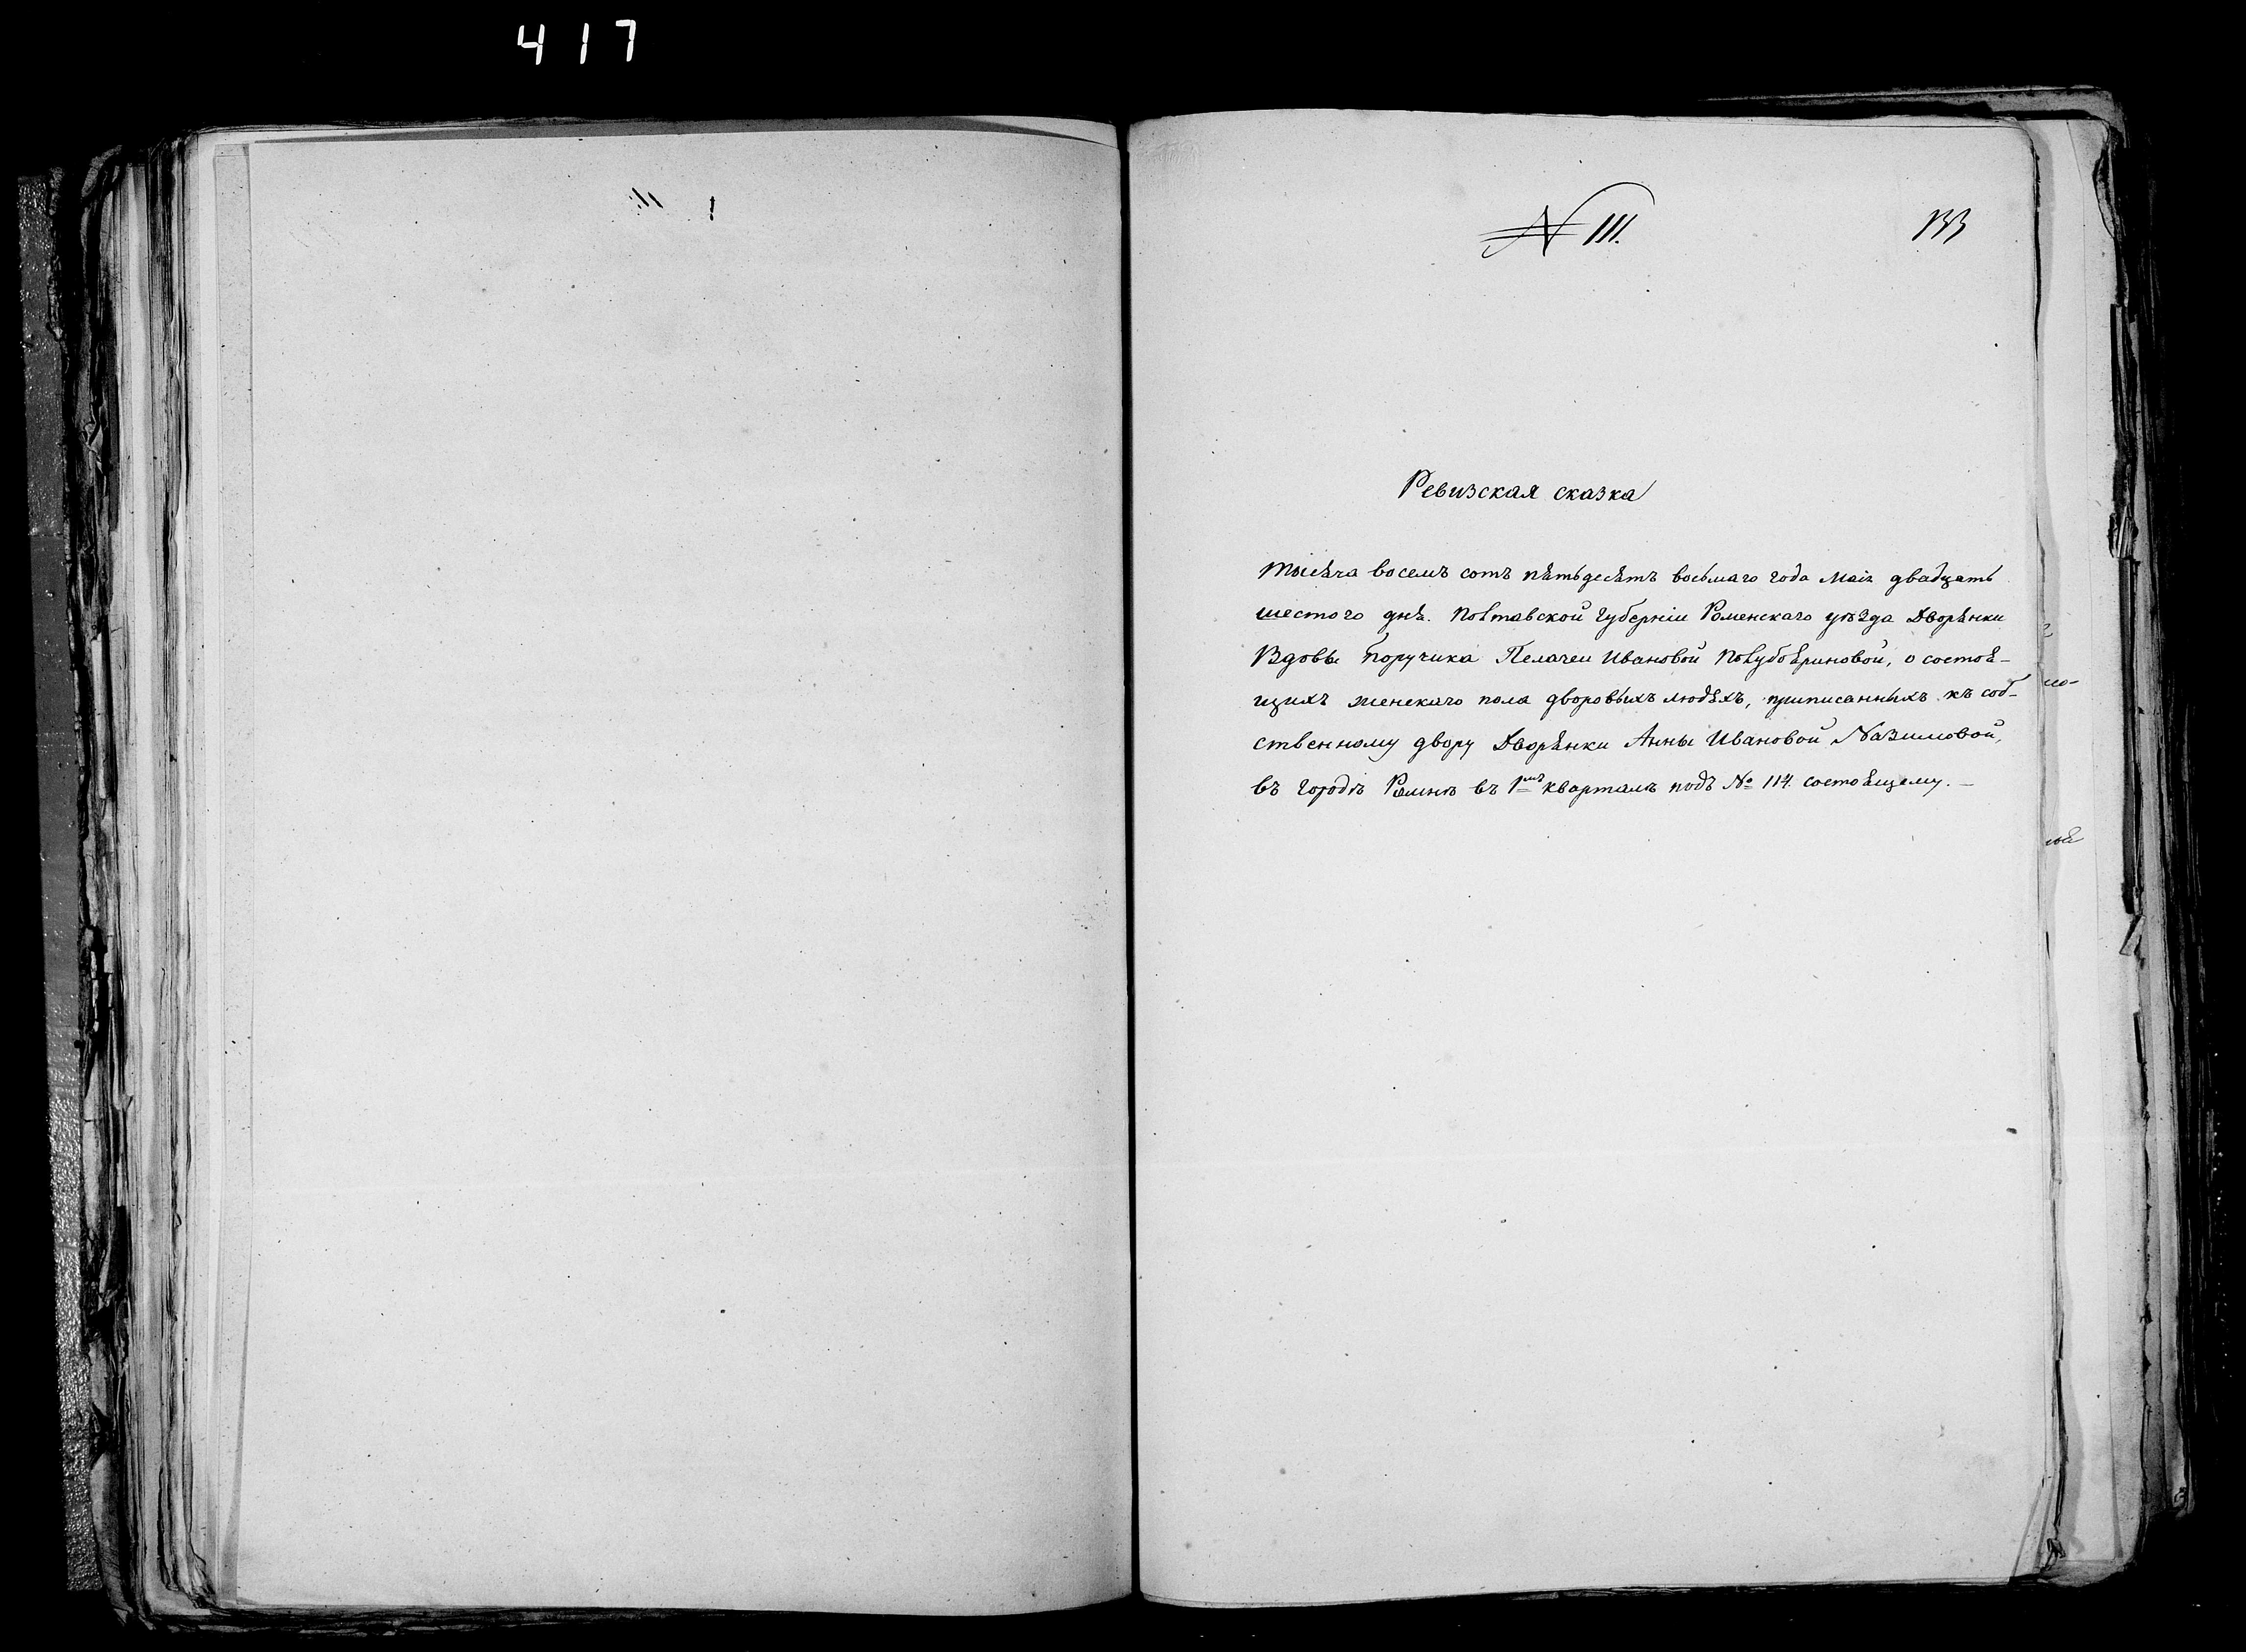 417
№ 111.
133
Ревизская сказка
тысяча восемъ сотъ пятьдесятъ восьмаго года Маія двадцать
шестого дня. Полтавской Губерніи Роменскаго уѣзда Дворянки
Вдовы Поручика Пелагеи Ивановой Полубояриновой, о состоя-
щихъ женскаго пола дворовыхъ людяхъ, приписанныхъ къ соб-
ственному двору Дворянки Анны Ивановой Назимовой,
въ городѣ Ромнѣ въ 1мъ кварталѣ подъ № 114. состоящему. —